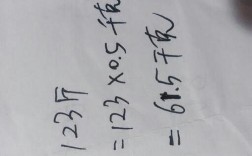 123斤
=123×0.5千克
=61.5千克